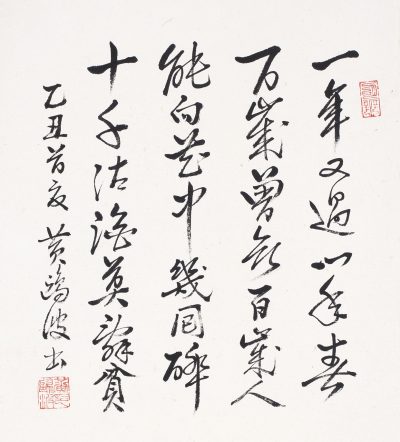 一年又過一年春
百歲曾無百歲人
能向花中幾回醉
十千沽酒莫辭貧
乙丑首夏 黃鷗波書